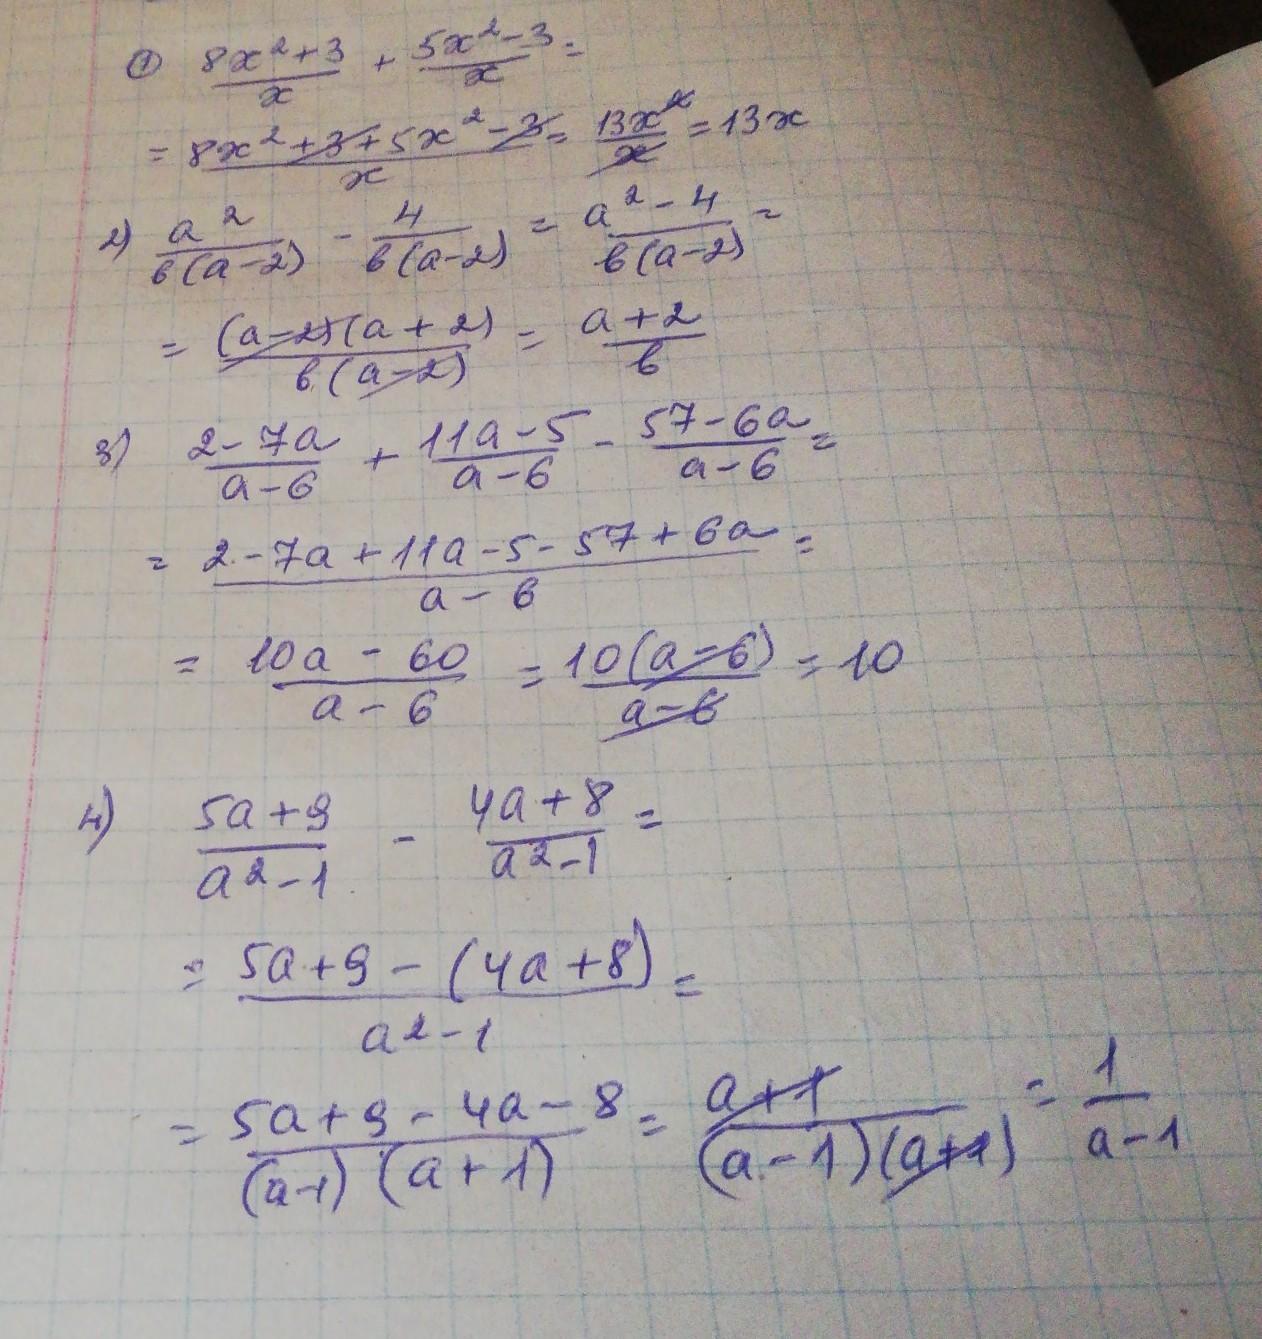 ① (8x²+3)/x + (5x²-3)/x =
= (8x²+3+5x²-3)/x = 13x²/x = 13x
2) a²/(в(a-2)) - 4/(в(a-2)) = (a²-4)/(в(a-2)) =
= ((a-2)(a+2))/(в(a-2)) = (a+2)/в
3) (2-7a)/(a-6) + (11a-5)/(a-6) - (57-6a)/(a-6) =
= (2-7a+11a-5-57+6a)/(a-6) =
= (10a-60)/(a-6) = 10(a-6)/(a-6) = 10
4) (5a+9)/(a²-1) - (4a+8)/(a²-1) =
= (5a+9-(4a+8))/(a²-1) =
= (5a+9-4a-8)/((a-1)(a+1)) = (a+1)/((a-1)(a+1)) = 1/(a-1)